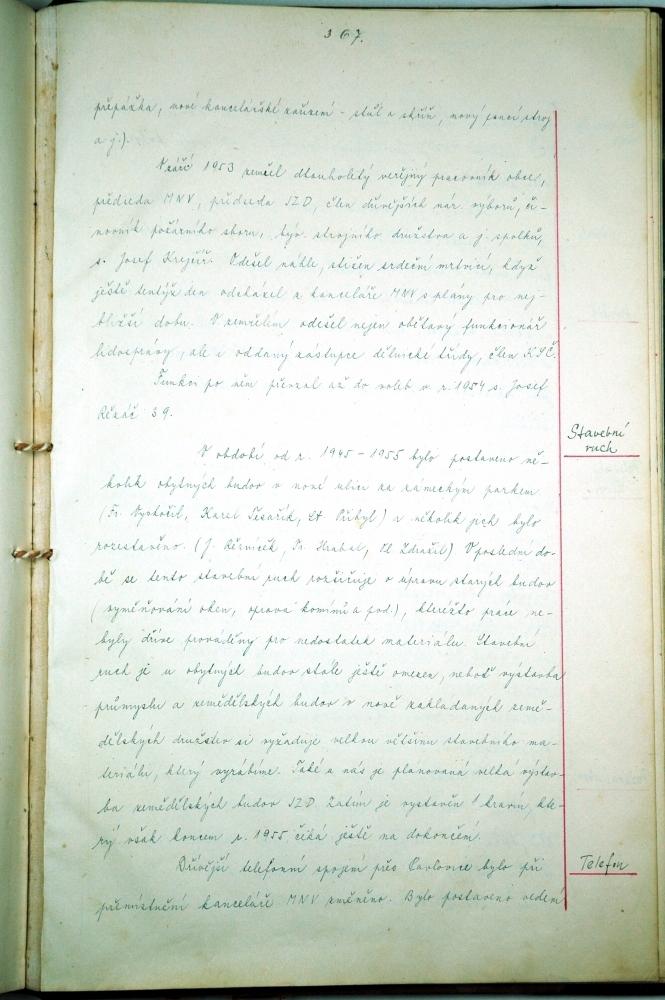 367.
přepážka, nové kancelářské zařízení - stůl a skříň, nový psací stroj
a j.).
V září 1953 zemřel dlouholetý veřejný pracovník obce,
předseda MNV, předseda JZD, člen dřívějších nár. výborů, či-
novník požárního sboru, býv. strojního družstva a j. spolků,
s. Josef Krejčíř. Odešel náhle, stižen srdeční mrtvicí, když
ještě tentýž den odcházel z kanceláře MNV s plány pro nej-
bližší dobu. V zemřelém odešel nejen obětavý funkcionář
lidosprávy, ale i oddaný zástupce dělnické třídy, člen KSČ.
Funkci po něm převzal až do voleb v r. 1954 s. Josef
Řezáč 39.
Stavební
ruch
V období od r. 1945 - 1955 bylo postaveno ně-
kolik obytných budov v nové ulici za zámeckým parkem
(Fr. Vyskočil, Karel Tesařík, St. Přibyl) a několik jich bylo
rozestavěno. (J. Řezníček, Fr. Hrabal, Ol. Zdražil) V poslední do-
bě se tento stavební ruch rozšiřuje o úpravu starých budov
(vyměňování oken, oprava komínů a pod.), kteréžto práce ne-
byly dříve prováděny pro nedostatek materiálu. Stavební
ruch je u obytných budov stále ještě omezen, neboť výstavba
průmyslu a zemědělských budov v nově zakládaných země-
dělských družstev si vyžaduje velkou většinu stavebního ma-
teriálu, který vyrábíme. Také u nás je plánovaná velká výstav-
ba zemědělských budov JZD. Zatím je vystavěn 1 kravín, kte-
rý však koncem r. 1955 čeká ještě na dokončení.
Telefon
Dřívější telefonní spojení přes Pavlovice bylo při
přemístnění kanceláře MNV změněno. Bylo postaveno vedení